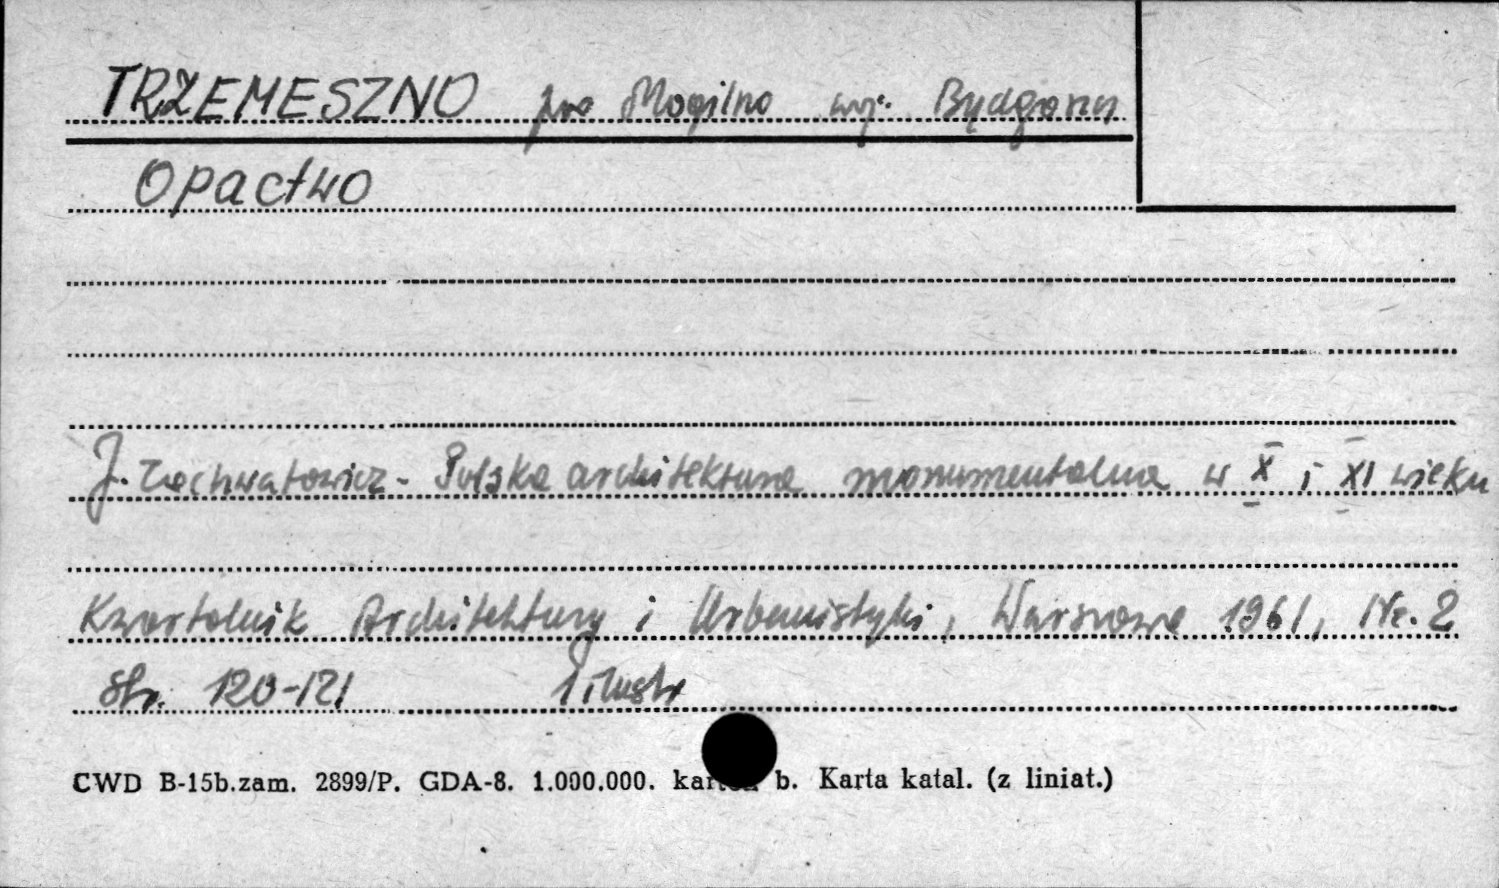 TRZEMESZNO pow Mogilno woj. Bydgoszcz
Opactwo
J. Zachwatowicz - Polska architektura monumentalna w X i XI wieku
Kwartalnik Architektury i Urbanistyki, Warszawa 1961, Nr. 2
str. 120-121 1 ilustr
CWD B-15b.zam. 2899/P. GDA-8. 1.000.000. b. Karta katal. (z liniat.)